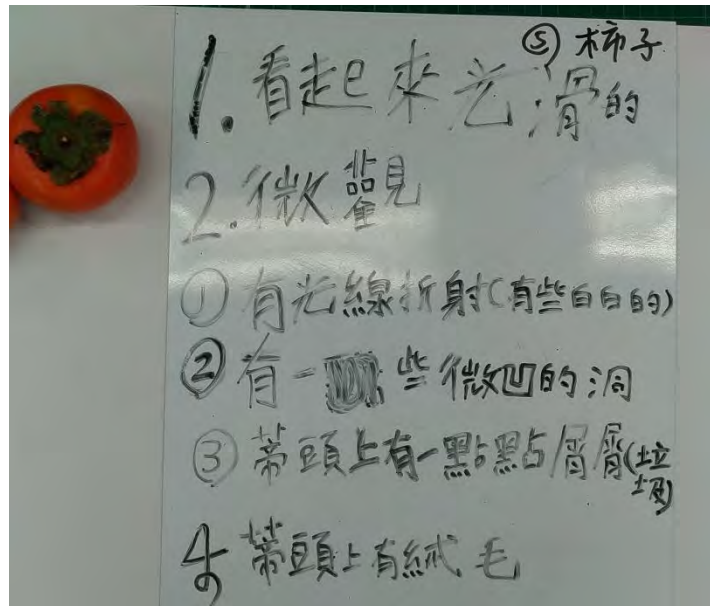 ⑤ 柿子
1. 看起來光滑的
2. 微觀
① 有光線折射(有些白白的)
② 有一些微凹的洞
③ 蒂頭上有一點點屑屑(垃圾)
4. 蒂頭上有絨毛